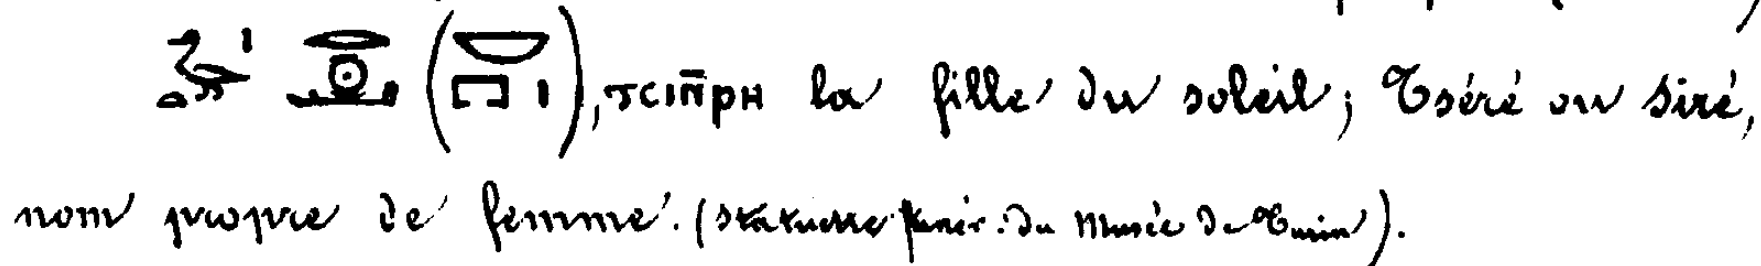 𓅭𓏤𓏏 𓂋𓇳𓂝 (𓎟𓉐𓏤), ⲧⲥⲓⲛ̄ⲣⲏ la fille du soleil; Tséré ou Siré,
nom propre de femme. (Statuette funér. du Musée de Turin).